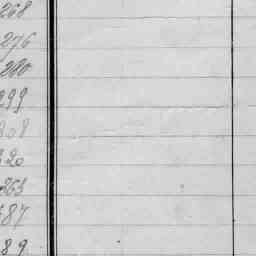 268
276
280
299
308
320
363
387
89